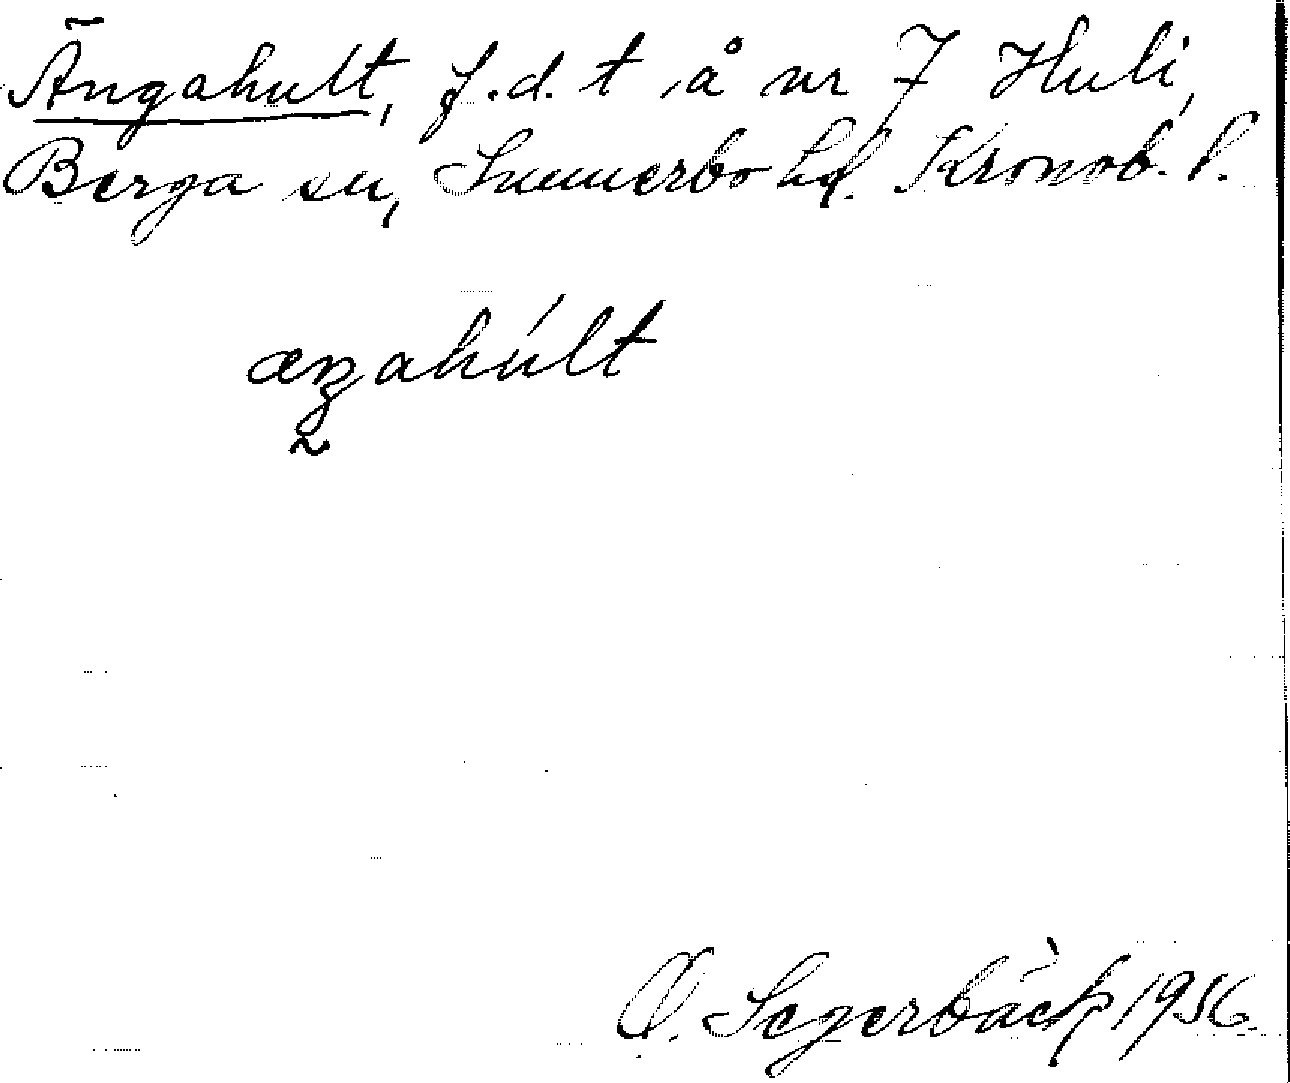 Ängahult, f.d. t å nr 7 Huli,
Berga sn, Sunnerbo hd. Kronob. l.
æŋahúlt
O. Segerbäck 1956